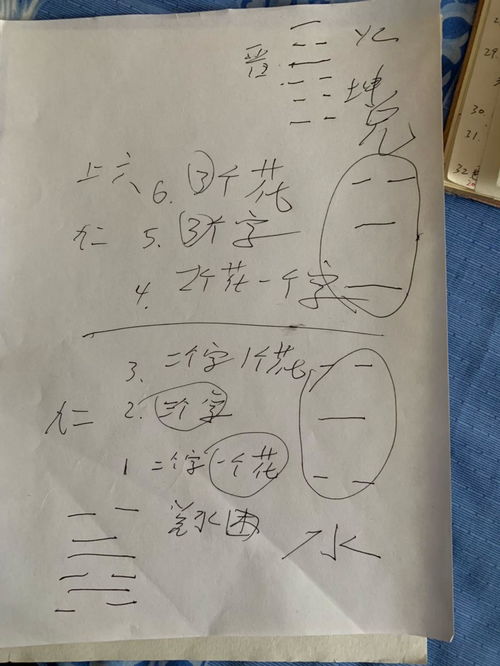 晋 火
坤
兑
上六 6. 3个花
九二 5. 3个字
4. 2个花一个字
3. 二个字1个花
九二 2. 三个字
1 二个字一个花
水困
水
29.
30.
31.
32